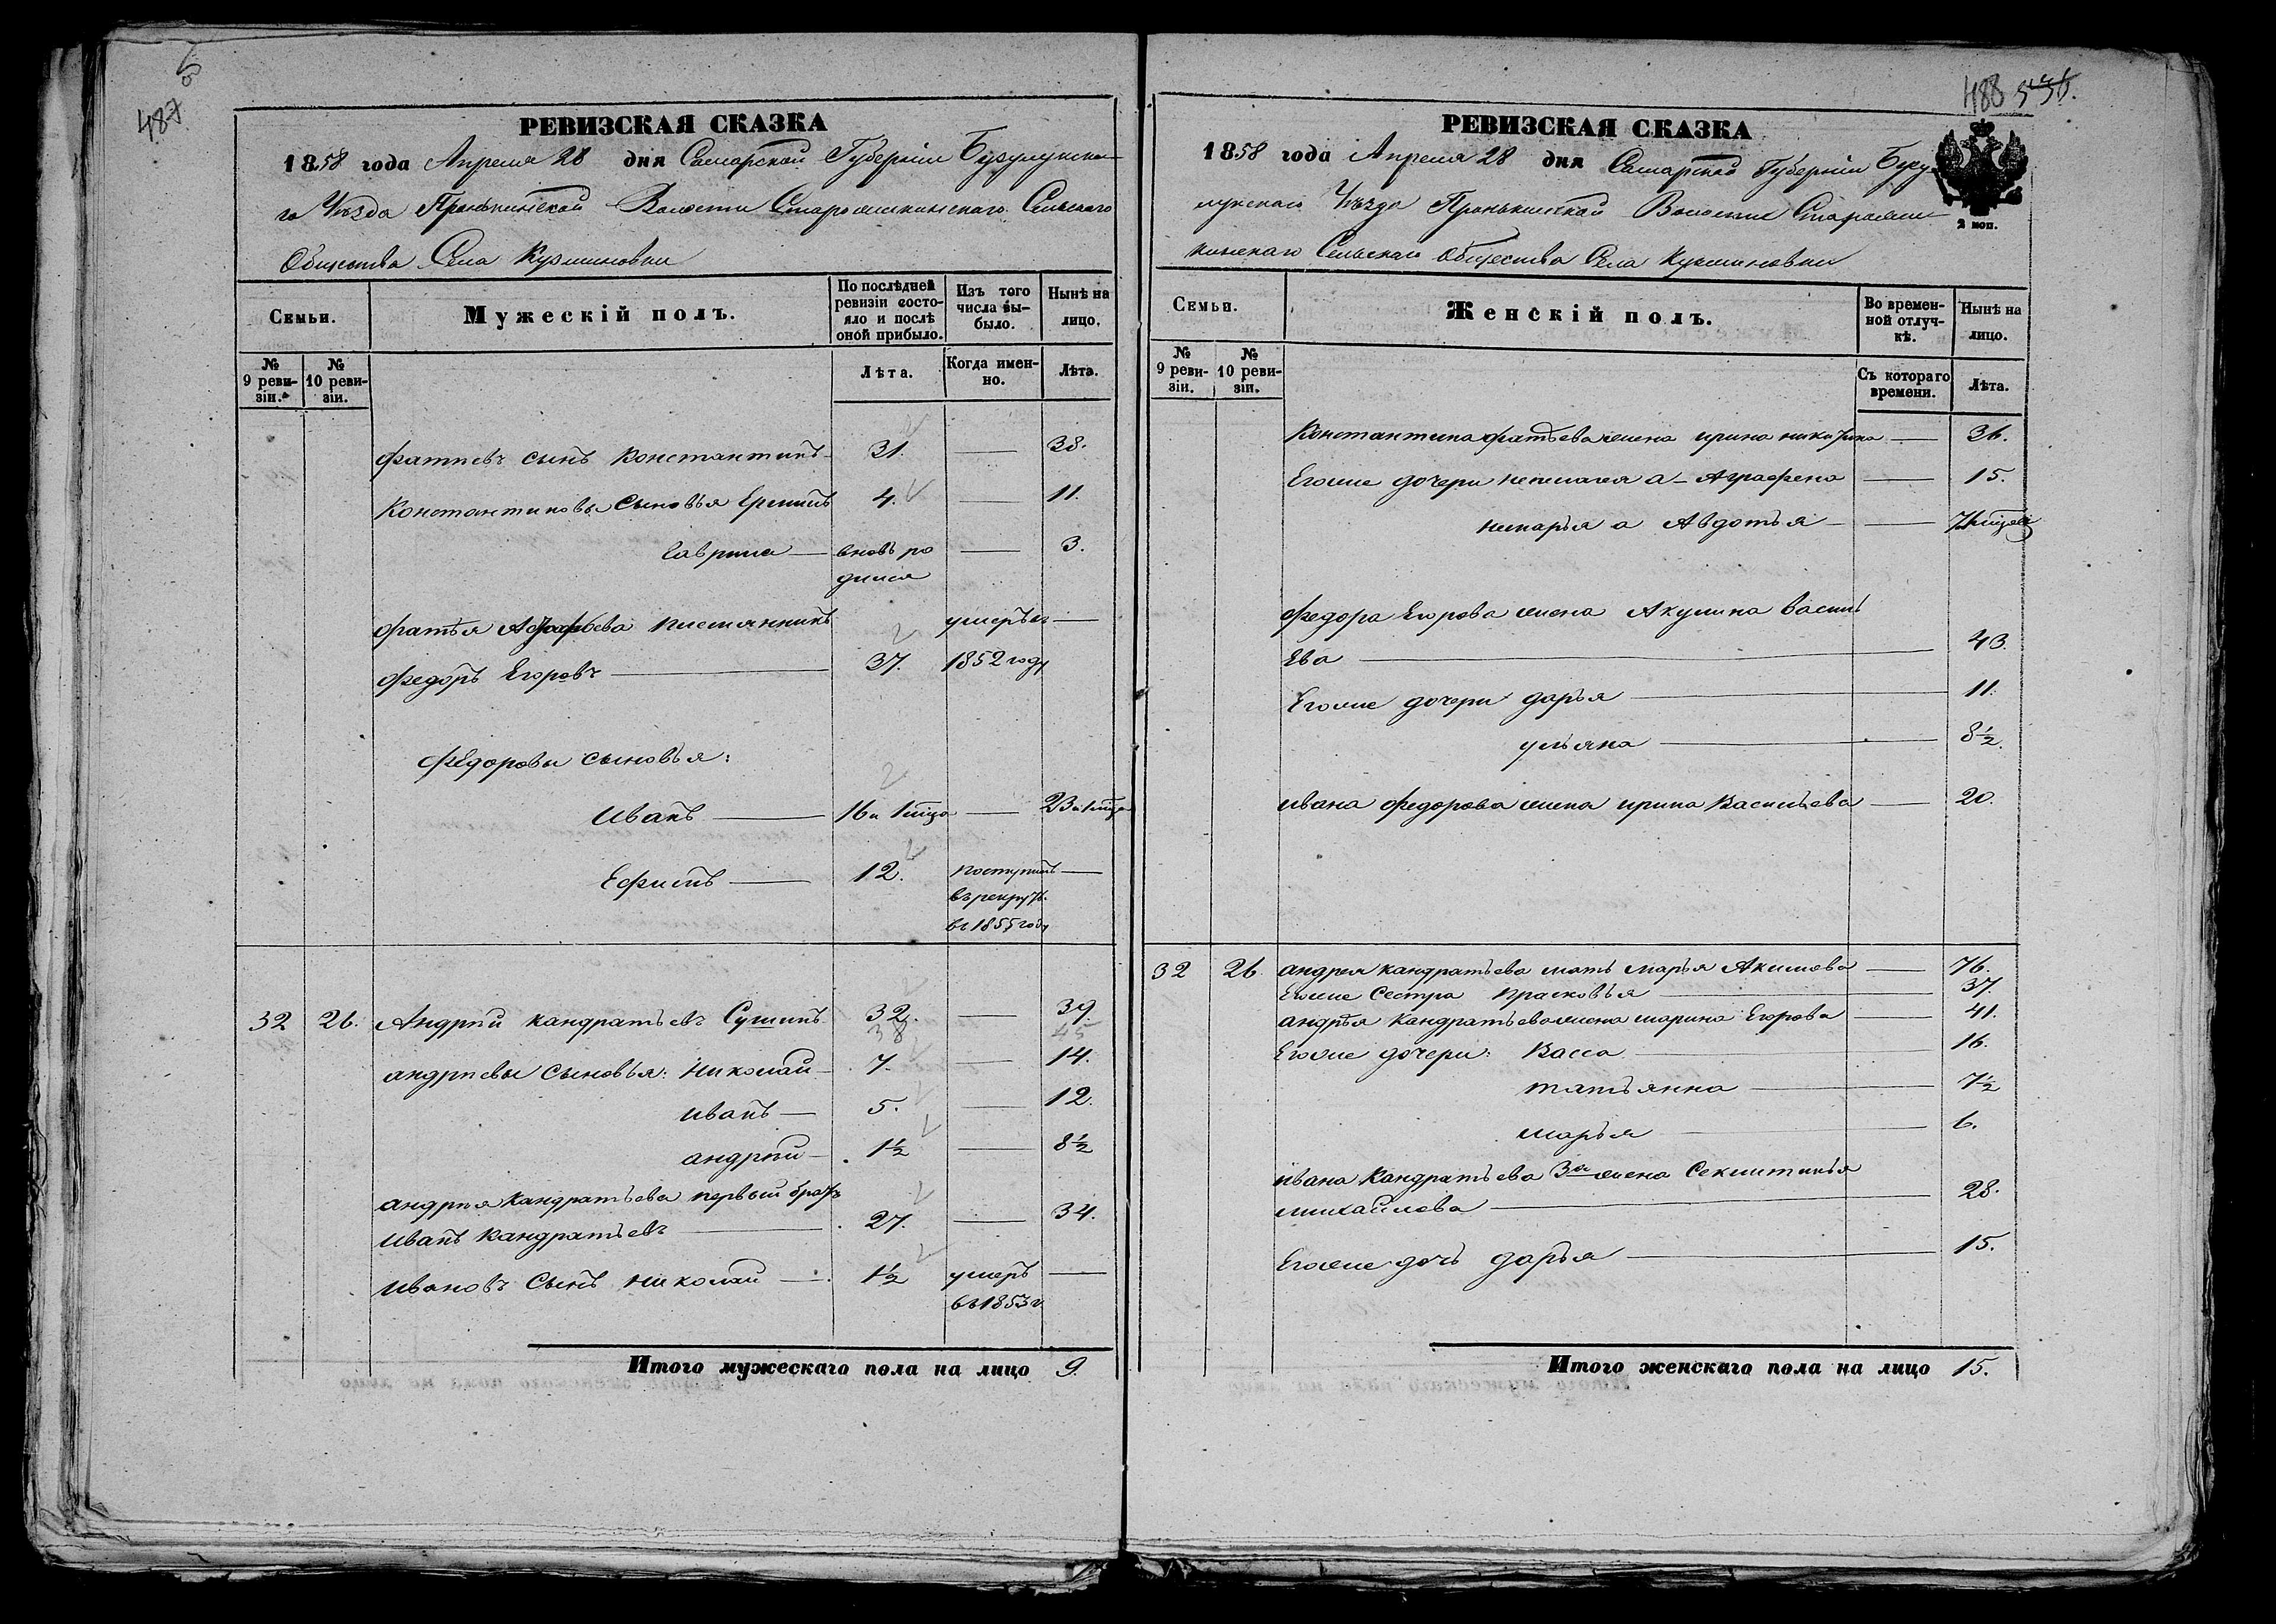 487
РЕВИЗСКАЯ СКАЗКА
1858 года Апреля 28 дня Самарской Губерніи Бузулукска-
го Уѣзда Пронькинской Волости Староямкинскаго Сельскаго
Общества Села Кузминовки
Семьи.
Мужескій полъ.
По послѣдней ревизіи состо-
яло и послѣ оной прибыло.
Изъ того числа вы-
было.
Нынѣ на лицо.
№ 9 реви-
зіи.
№ 10 реви-
зіи.
Лѣта.
Когда имен-
но.
Лѣта.
Фатѣевъ сынъ Константинъ 31. — 38.
Константиновы сыновья Ермилъ 4. — 11.
Гаврила — вновь ро — 3.
дился
Фатѣя племянникъ умеръ въ —
Федоръ Егоровъ — 37. 1852 году
Федоровы сыновья:
Иванъ — 16 и 1 мѣца — 23 и 1 мѣца
Ефимъ — 12. поступилъ —
въ рекруты
въ 1855 году
32 26. Андрѣй Кандратьевъ Сушинъ 32. — 39.
38 45
Андрѣевы сыновья: Николай — 7. — 14.
Иванъ — 5. — 12.
Андрѣй — 1½ — 8½
Андрѣя Кандратьева первый братъ
Иванъ Кандратьевъ — 27. — 34.
Ивановъ сынъ Николай — 1½ умеръ —
въ 1853 г.
Итого мужескаго пола на лицо 9.
488
РЕВИЗСКАЯ СКАЗКА
1858 года Апреля 28 дня Самарской Губерніи Бузу-
лукскаго Уѣзда Пронькинской Волости Староям-
кинскаго Сельскаго Общества Села Кузминовки
2 коп.
Семьи.
Женскій полъ.
Во времен-
ной отлуч-
кѣ.
Нынѣ на лицо.
№ 9 реви-
зіи.
№ 10 реви-
зіи.
Съ котораго времени.
Лѣта.
Константина Фатѣева жена Ирина Никитина — 36.
Егоже дочери а Аграфена — 15.
а Авдотья —
Федора Егорова жена Акулина Василь
ева — 43.
Егоже дочери Дарья — 11.
Ульяна — 8½.
Ивана Федорова жена Ирина Васильева — 20.
32 26 Андрея Кандратьева мать Марья Акимова — 76.
Егоже сестра Прасковья — 37.
Андрѣя Кандратьева жена Марина Егорова — 41.
Егоже дочери: Васса — 16.
Татьянна — 7½
Марья — 6.
Ивана Кандратьева 3я жена Секлитинья
Михайлова — 28.
Егоже дочь Дарья — 15.
Итого женскаго пола на лицо 15.